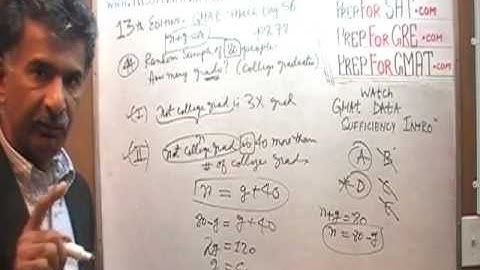 13th Edition GMAT Math Day 56
p277
Random Sample of 80 people
How many grads? (College graduates)
(I) Not college grad is 3X grad
(II) not college grad is 40 more than
# of college grads
n = g+40
80-g = g+40
2g = 120
PREPFORSAT.COM
PREPFORGRE.COM
PREPFORGMAT.COM
WATCH
GMAT DATA
SUFFICIENCY INTRO
A B
D C
E
n+g=80
n = 80-g